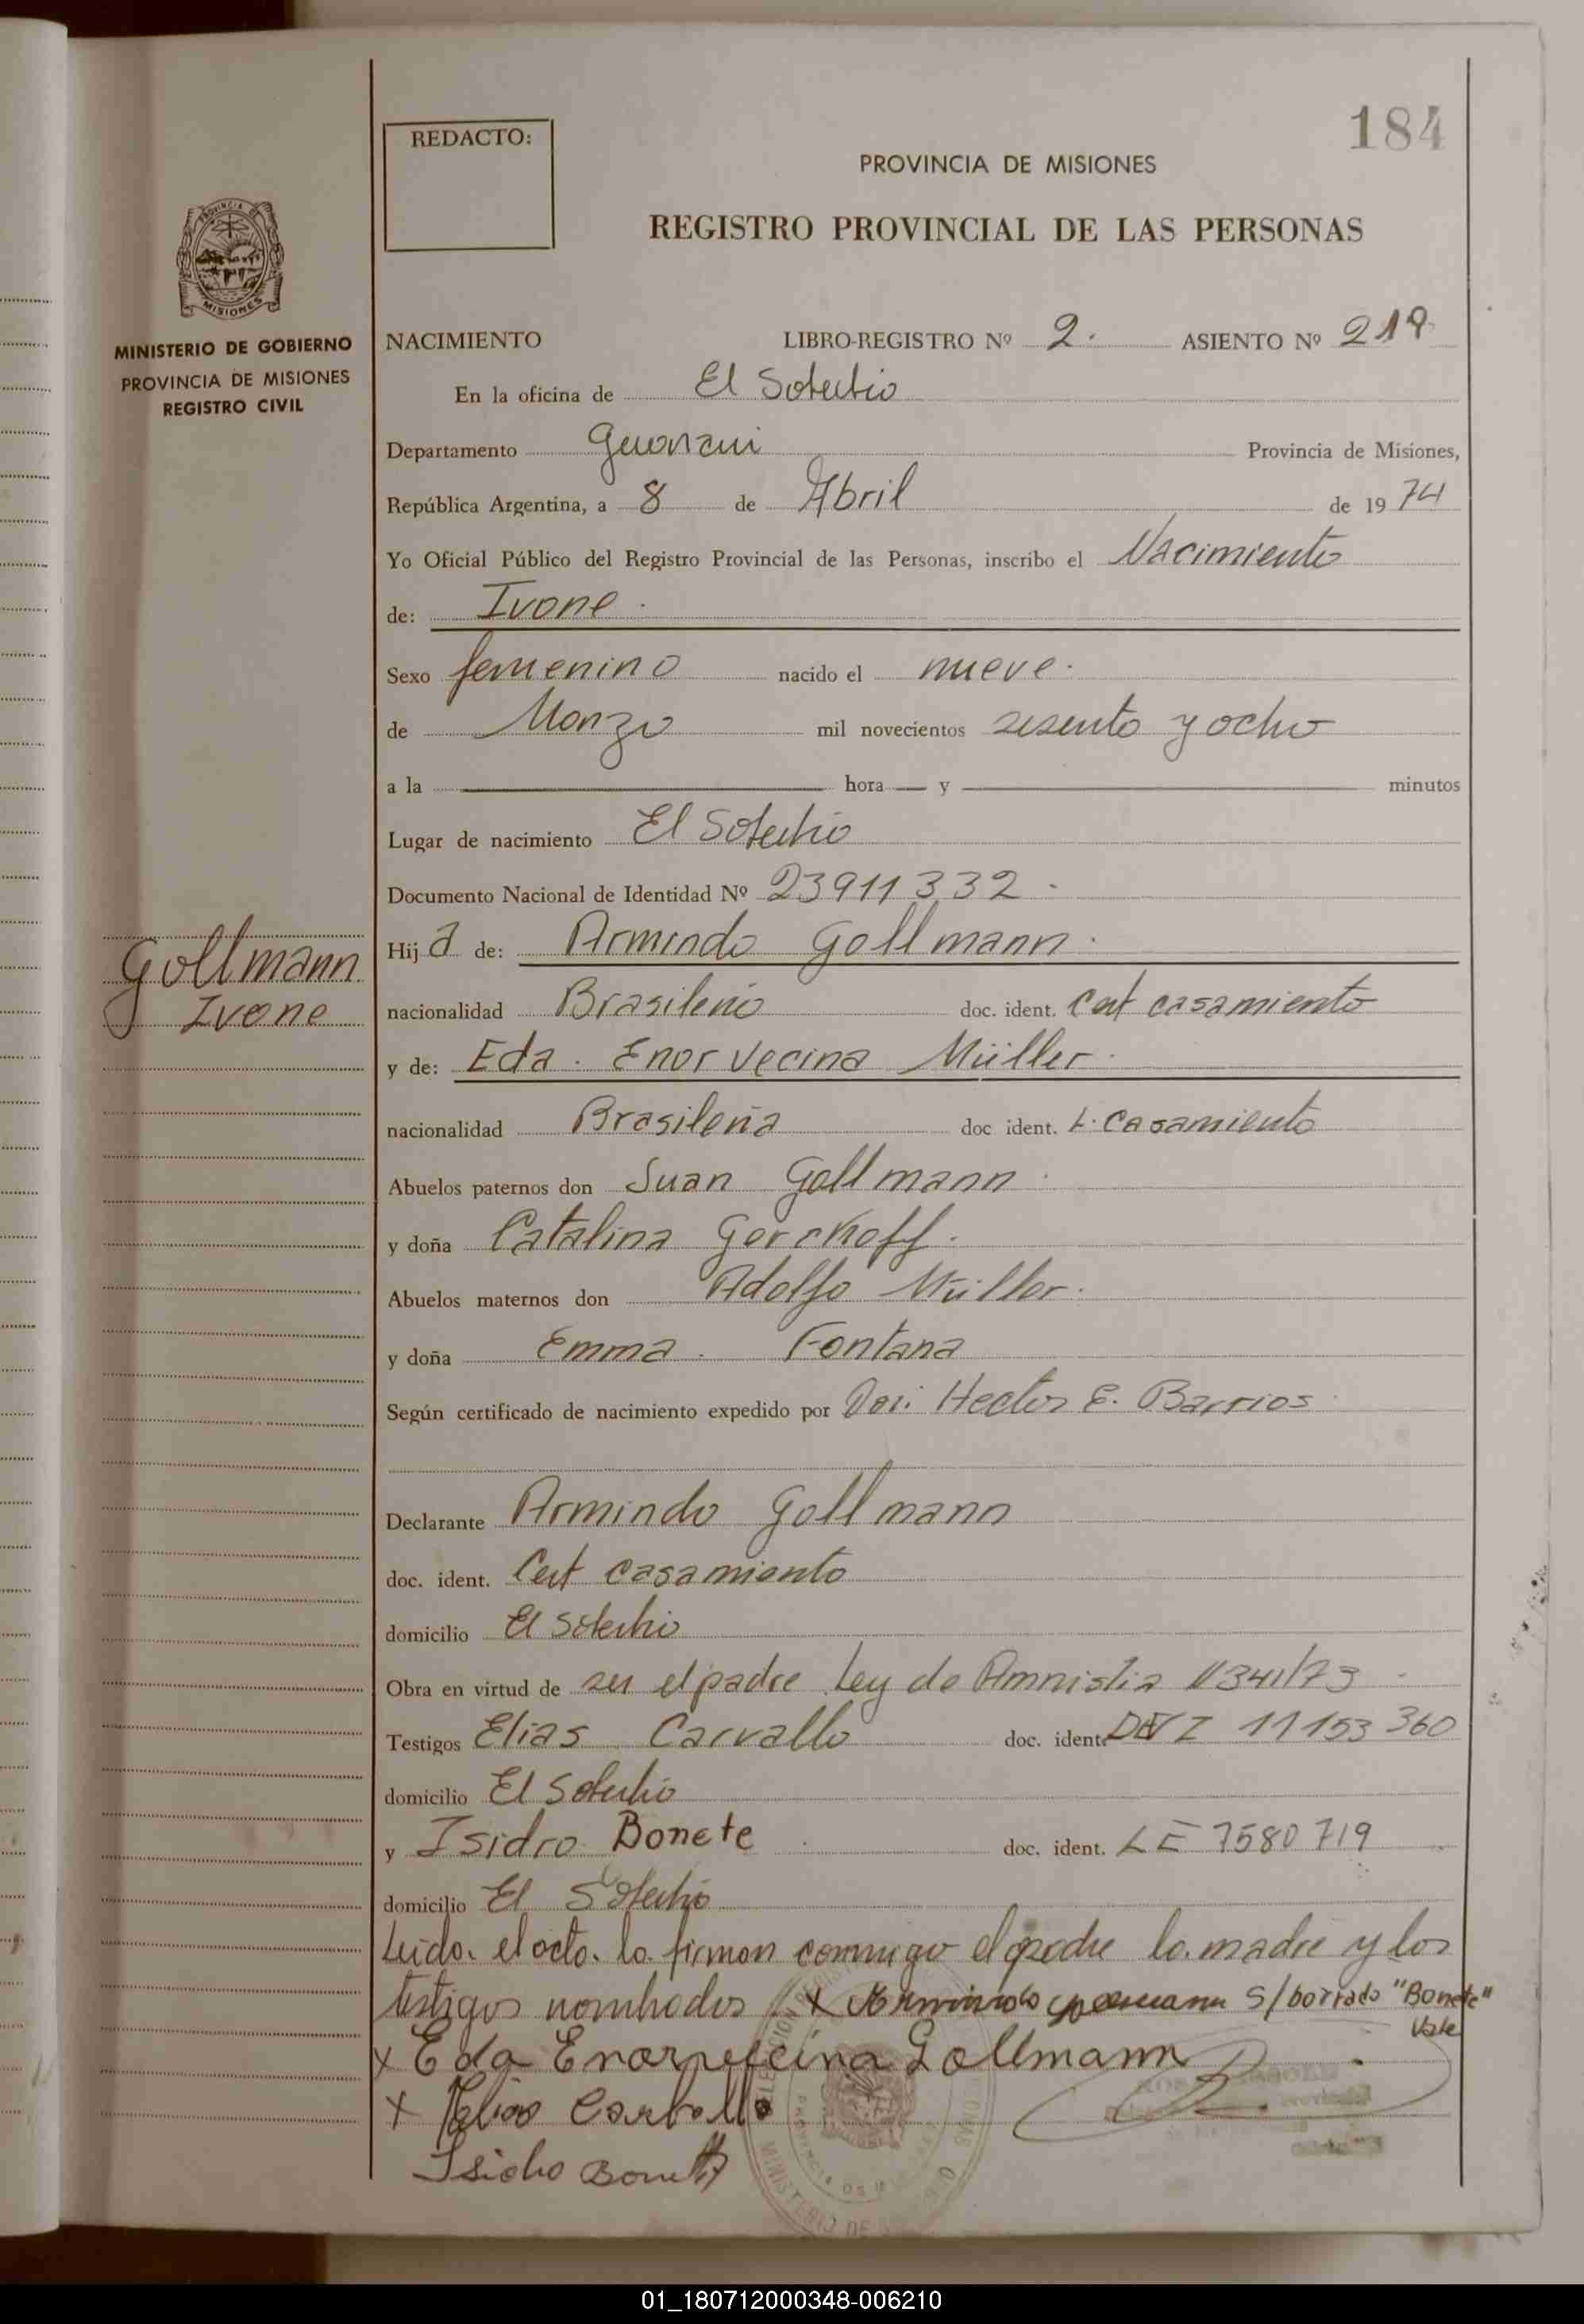 184
REDACTO:
PROVINCIA DE MISIONES
REGISTRO PROVINCIAL DE LAS PERSONAS
MISIONES
MINISTERIO DE GOBIERNO
PROVINCIA DE MISIONES
REGISTRO CIVIL
NACIMIENTO LIBRO-REGISTRO Nº 2. ASIENTO Nº 219
En la oficina de El Soberbio
Departamento Guarani Provincia de Misiones,
República Argentina, a 8 de Abril de 1974
Yo Oficial Público del Registro Provincial de las Personas, inscribo el Nacimiento
de: Ivone.
Sexo femenino nacido el nueve.
de Marzo mil novecientos sesenta y ocho
a la hora y minutos
Lugar de nacimiento El Soberbio
Documento Nacional de Identidad Nº 23911332.
Gollmann
Ivone
Hija de: Armindo Gollmann.
nacionalidad Brasileño doc. ident. Cert casamiento
y de: Eda. Enorvecina Müller.
nacionalidad Brasileña doc ident. L. Casamiento
Abuelos paternos don Juan Gollmann
y doña Catalina Gerckoff.
Abuelos maternos don Adolfo Müller.
y doña Emma. Fontana
Según certificado de nacimiento expedido por Hector E. Barrios
Declarante Armindo Gollmann
doc. ident. Cert casamiento
domicilio El Soberbio
Obra en virtud de ser el padre Ley de Amnistia 341/73
Testigos Elias Carvallo doc. ident. 11153360
domicilio El Soberbio
y Isidro Bonete doc. ident. LE 7580719
domicilio El Soberbio
Leida el acta la firman conmigo el padre la madre y los
testigos nombrados X Armindo S/borrado "Bonete"
Vale
X Eda Enorvecina Gollmann
X Elias Carballo
Isidro Bonete
01_180712000348-006210